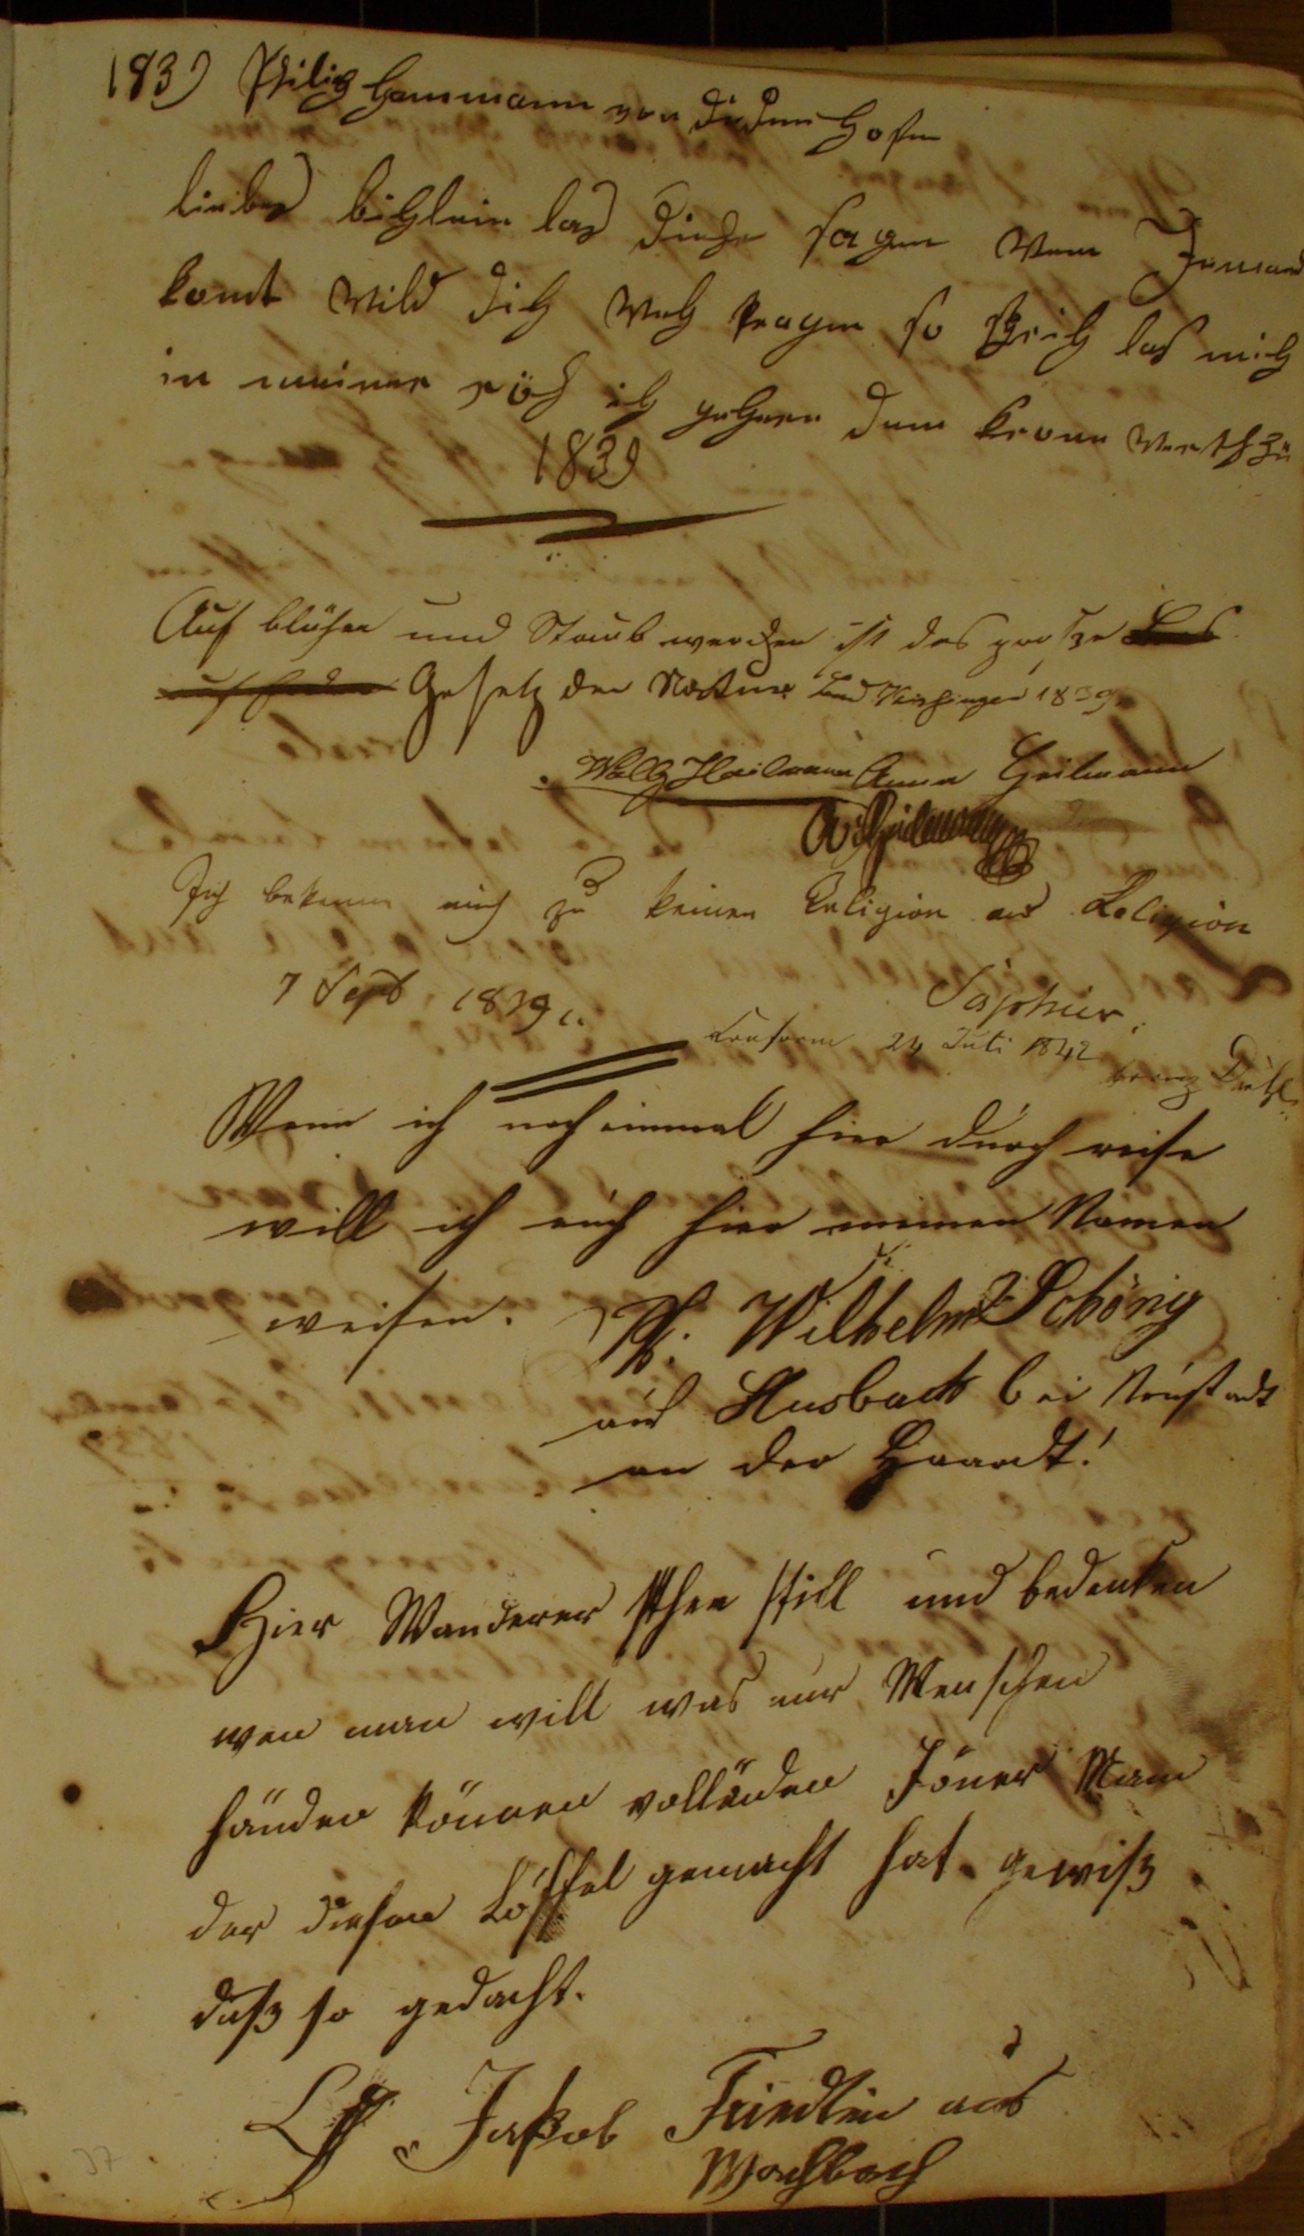 1839 Philip Hammann von Dudenhofen
liebes bichlein las diehr sagen wen Jemand
komt wild dich weg tragen so sprich las mich
in meiner ruh ich gehere dem kronewerth zu
1839
Auf blühen und Staub werden ist das große
Gesetz der Nattur Bad Kissingen 1839
Heilmann Anna Heilmann
A. Heilmann
Ich bekenne mich zu keiner Religion aus Religion
7 Sept 1839
Saphier
conform 24 Juli 1842
Wenn ich noch einmal hier durch reise
will ich euch hier meinen Namen
weisen. Wilhelm Schönig
aus Musbach bei Neustadt
an der Haardt!
Hier Wanderer sthee still und bedenken
wen man will was nur Menschen
händen können vollenden Jöner Mann
der diesen Löffel gemacht hat gewiß
daß so gedacht.
Jakob Friedlin aus
Machbach
37